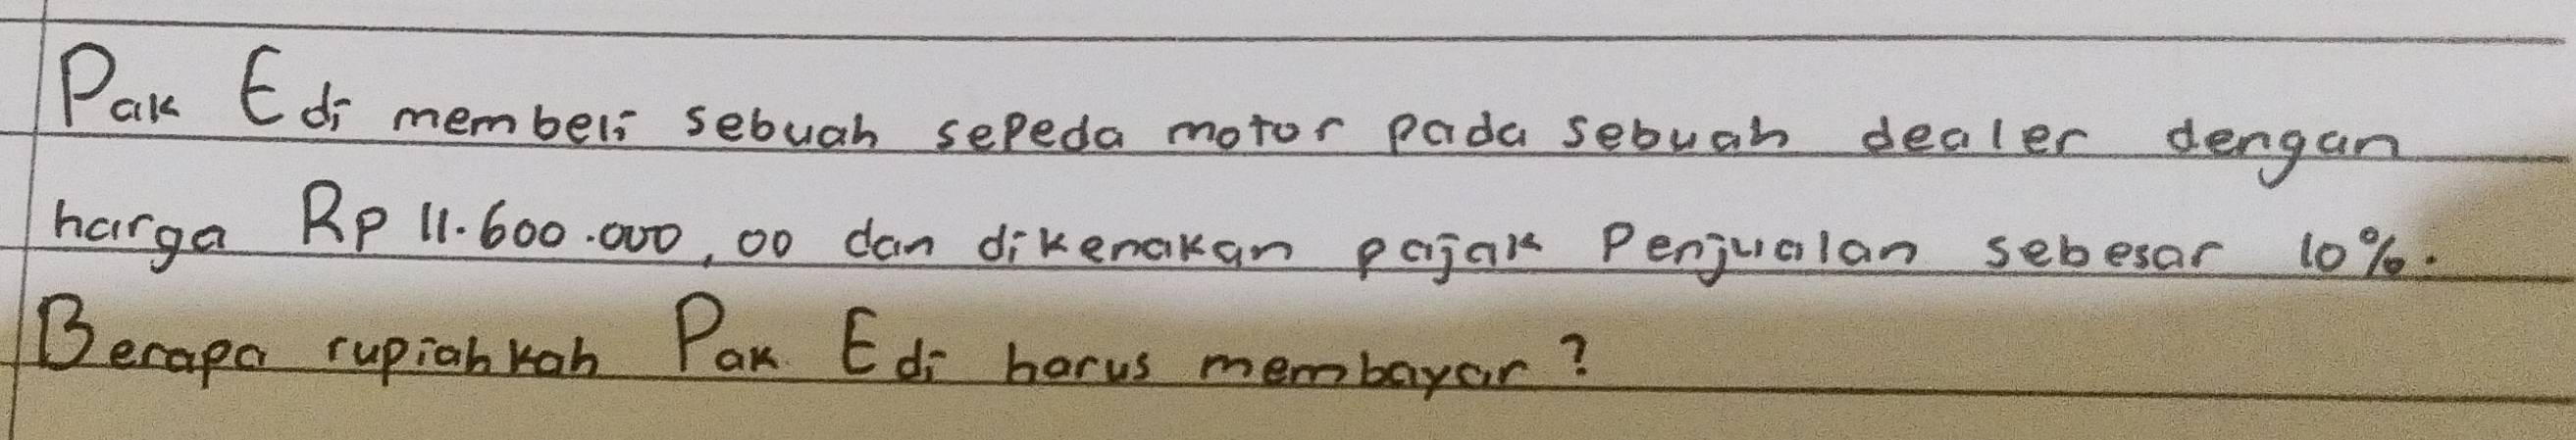 Pak Edi membeli sebuah sepeda motor pada sebuah dealer dengan
harga Rp 11.600.000,00 dan dikenakan pajak Penjualan sebesar 10%.
Berapa rupiahkah Pak Edi harus membayar?